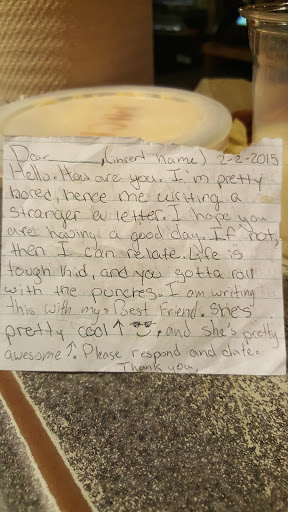 Dear ______, (insert name) 2-2-2015
Hello. How are you. I'm pretty
bored, hence me writing a
stranger a letter. I hope you
are having a good day. If not,
then I can relate. Life is
tough kid, and you gotta roll
with the punches. I am writing
this with my Best Friend. She's
pretty cool ↑ , and she's pretty
awesome ↑. Please respond and date.
Thank you,